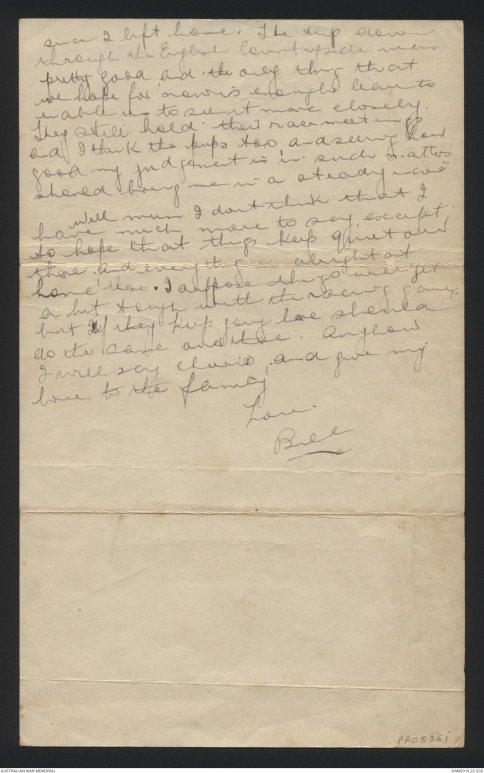 since I left home. The trip down
through the English Countryside was
pretty good and the only thing that
we hope for now is enough leave to
enable us to see it more closely.
They still hold their race meetings
and I think the pups too and seeing how
good my judgement is in such matters
should bring me in a steady
Well mum I dont think that I
have much more to say except
to hope that things keep quiet over
there and everything is alright at
home there. I suppose things will get
a bit tough with the racing game,
but if they keep going here should
do the same over there. Anyhow
I will say cheerio, and give my
love to the family
Love.
Bill
PR05361
AUSTRALIAN WAR MEMORIAL